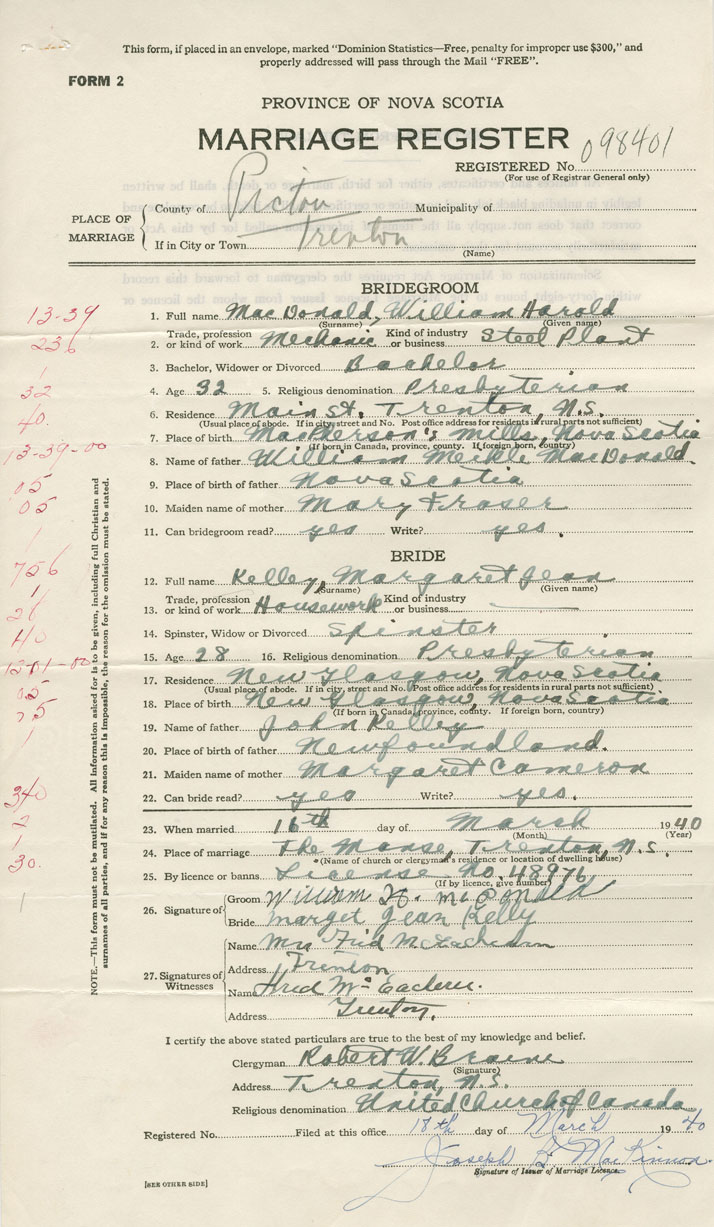 This form, if placed in an envelope, marked "Dominion Statistics—Free, penalty for improper use $300," and
properly addressed will pass through the Mail "FREE".
FORM 2
PROVINCE OF NOVA SCOTIA
MARRIAGE REGISTER
098401
REGISTERED No.
(For use of Registrar General only)
PLACE OF MARRIAGE
County of Picton Municipality of
If in City or Town Trenton
(Name)
BRIDEGROOM
1. Full name MacDonald, William Harold
(Surname) (Given name)
2. Trade, profession or kind of work Mechanic Kind of industry or business Steel Plant
3. Bachelor, Widower or Divorced Bachelor
4. Age 32 5. Religious denomination Presbyterian
6. Residence Main St. Trenton, N.S.
(Usual place of abode. If in city, street and No. Post office address for residents in rural parts not sufficient)
7. Place of birth MacPherson's Mills, Nova Scotia
(If born in Canada, province, county. If foreign born, country)
8. Name of father William Meikle MacDonald
9. Place of birth of father Nova Scotia
10. Maiden name of mother Mary Fraser
11. Can bridegroom read? yes Write? yes.
BRIDE
12. Full name Kelley, Margaret Jean
(Surname) (Given name)
13. Trade, profession or kind of work Housework Kind of industry or business
14. Spinster, Widow or Divorced Spinster
15. Age 28 16. Religious denomination Presbyterian
17. Residence New Glasgow, Nova Scotia
(Usual place of abode. If in city, street and No. Post office address for residents in rural parts not sufficient)
18. Place of birth New Glasgow, Nova Scotia
(If born in Canada, province, county. If foreign born, country)
19. Name of father John Kelley
20. Place of birth of father Newfoundland.
21. Maiden name of mother Margaret Cameron
22. Can bride read? yes Write? yes.
23. When married 16th day of March 1940
(Month) (Year)
24. Place of marriage The Manse, Trenton, N.S.
(Name of church or clergyman's residence or location of dwelling house)
25. By licence or banns License No. 48976
(If by licence, give number)
26. Signature of
Groom William H. McDonald
Bride Marget Jean Kelly
27. Signatures of Witnesses
Name Mrs Fred McEachern
Address Trenton
Name Fred McEachern.
Address Trenton.
I certify the above stated particulars are true to the best of my knowledge and belief.
Clergyman Robert W. Braine
(Signature)
Address Trenton, N.S.
Religious denomination United Church of Canada
Registered No. Filed at this office 18th day of March 1940
Joseph B. MacKinnon.
Signature of Issuer of Marriage Licence.
[SEE OTHER SIDE]
NOTE.—This form must not be mutilated. All information asked for is to be given, including full Christian and
surnames of all parties, and if for any reason this is impossible, the reason for the omission must be stated.
13-39
236
1
32
40.
13-39-00
05
05
1
756
1
26
40
1201-00
05
75
1
340
2
1
30.
1